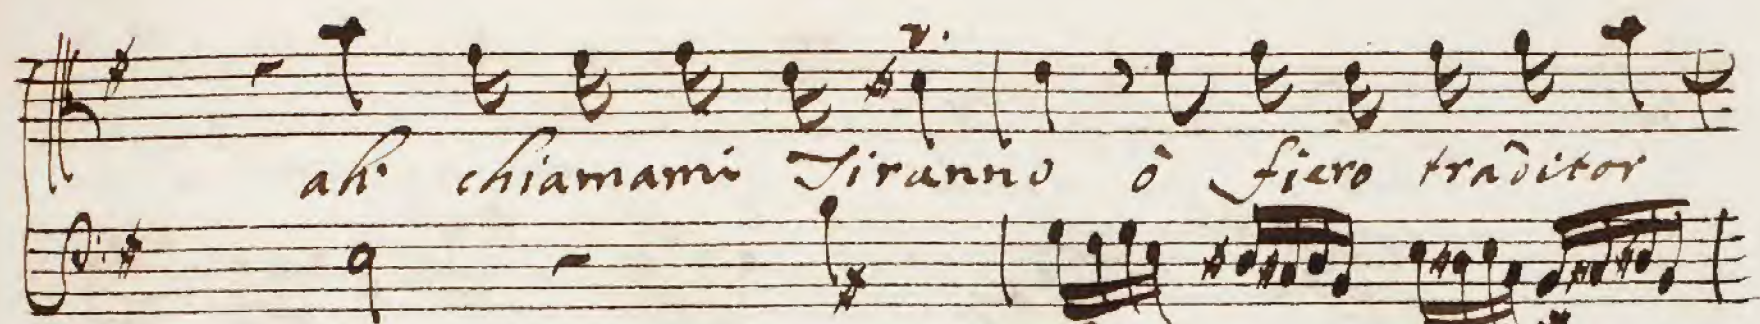 ah chiamami Tiranno ò fiero traditor